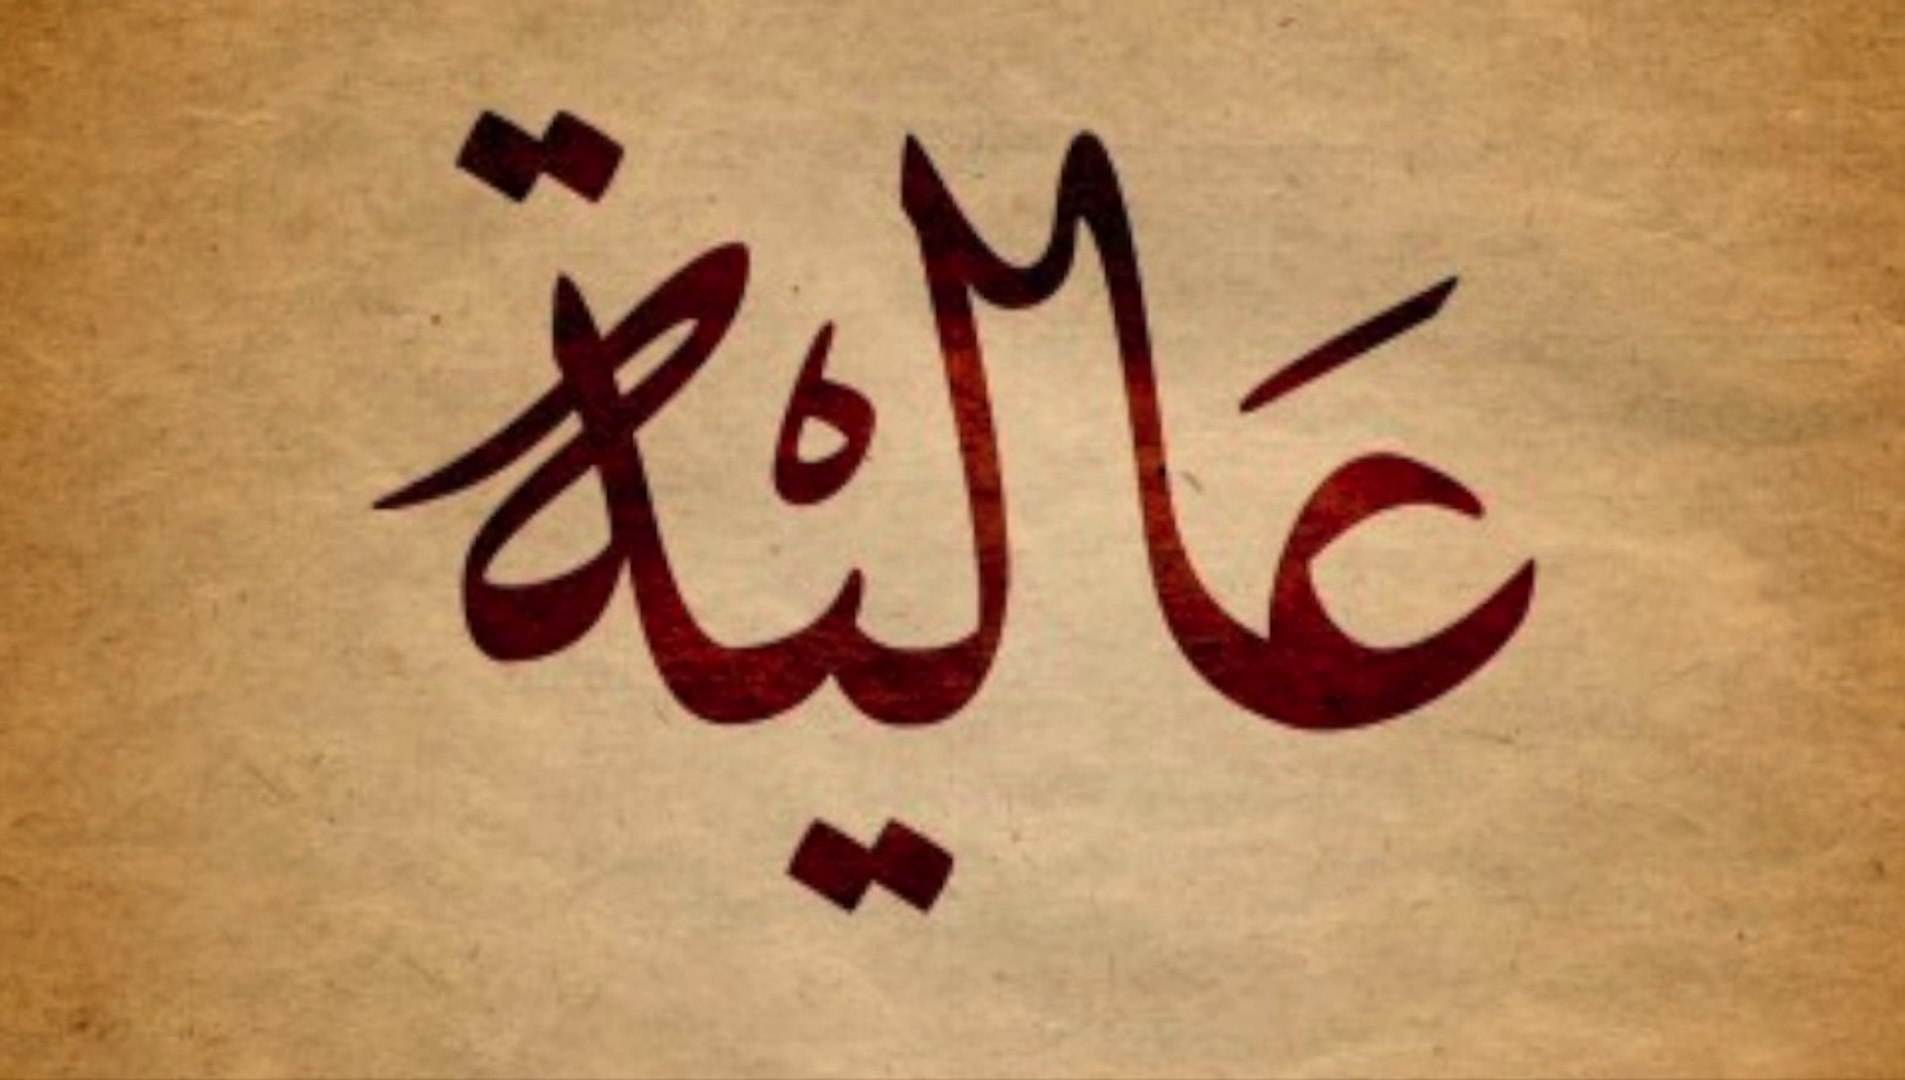 عَالية